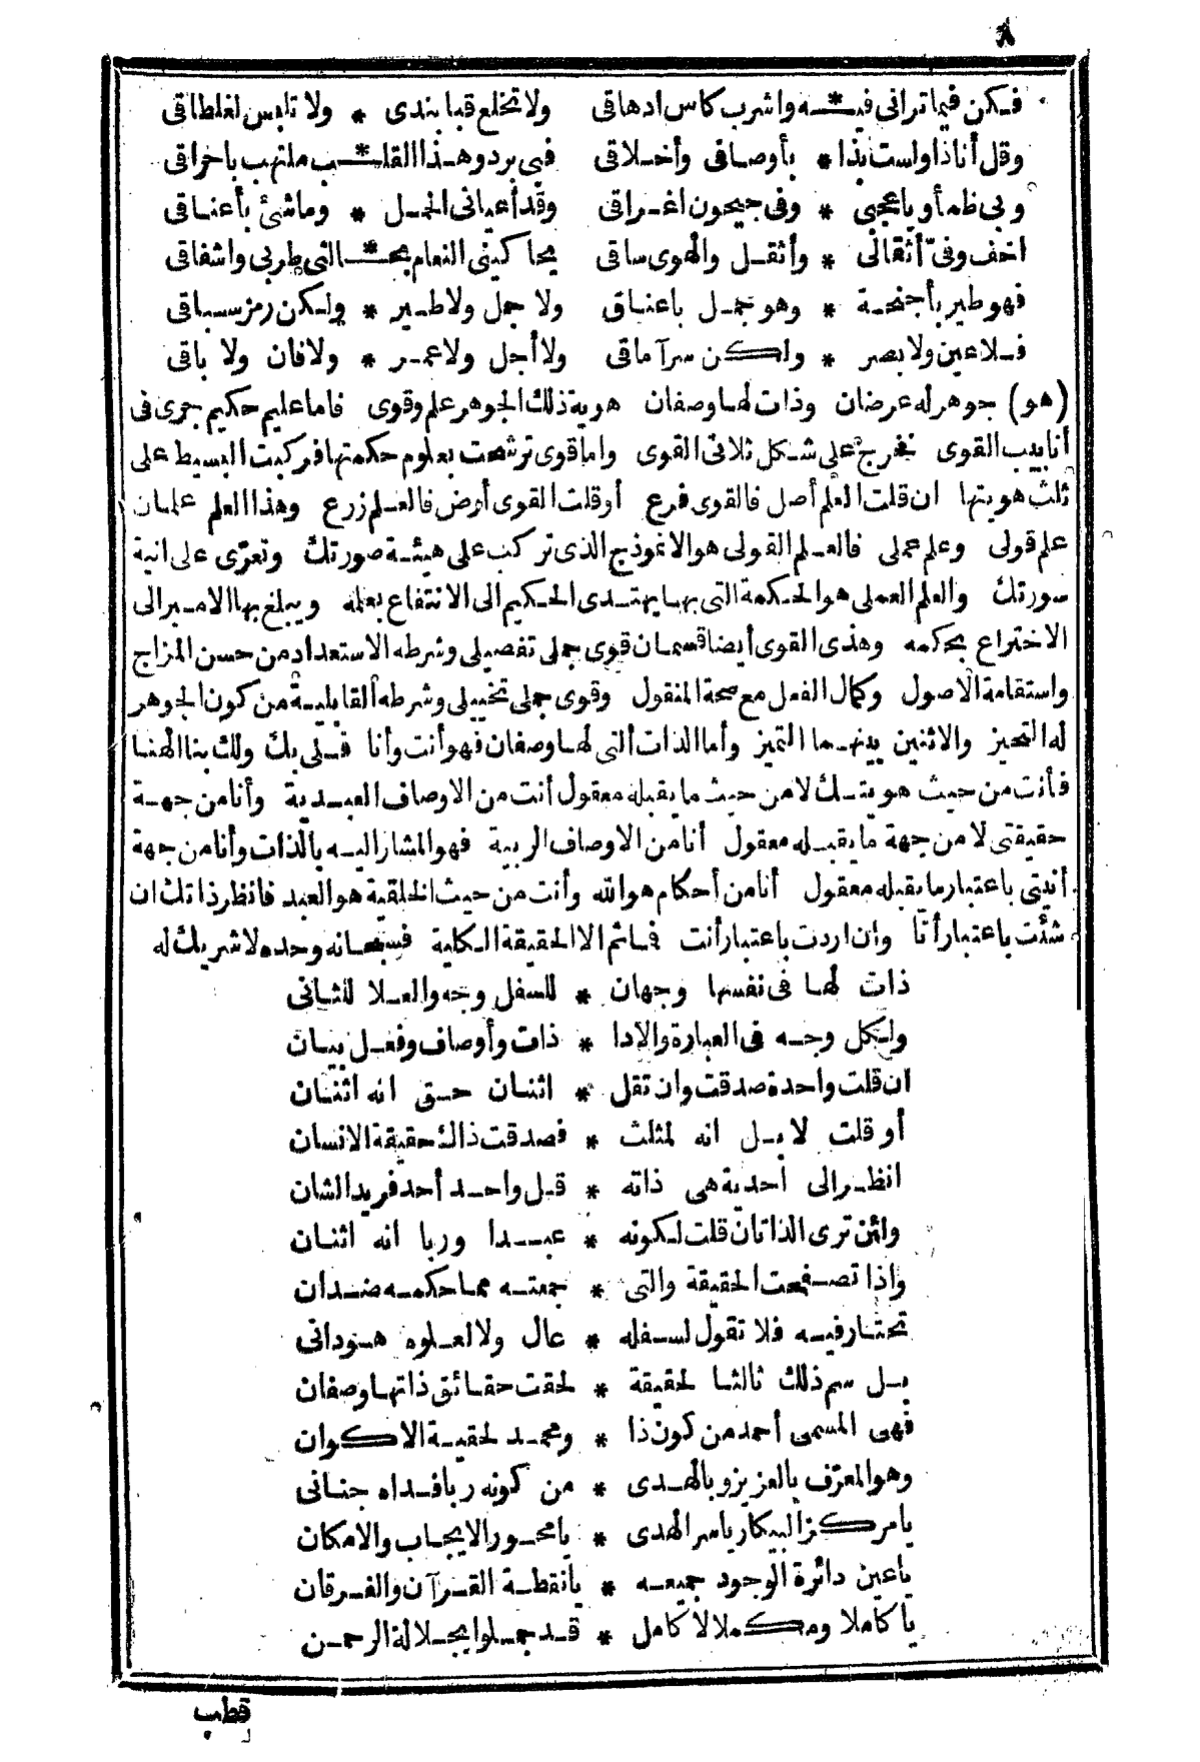 ٨
فكن فيما تراني فيـ * ـه واشرب كاس ادهاقي ولا تخلع قبا بندى * ولا تلبس لغلطاقي
وقل أنا ذا ولست بذا * بأوصافى وأخلاقى فبى برد وهذا القلـ * ـب ملتهب باحراقى
وبى ظمأ ويا عجبى * وفى جيحون اغراقى وقد أعيانى الحمل * وما شئ بأعناقى
اخف وفىّ أثقالى * وأثقل والهوى ساقى يحاكينى النعام بحـ * ـالتى طربى واشفاقى
فهو طير بأجنحة * وهو جمل باعناق ولا جمل ولا طير * ولكن رمز سباقى
فلا عين ولا بصر * ولكن سر آماقى ولا أجل ولا عمر * ولا فان ولا باقى
(هو) جوهر له عرضان وذات لها وصفان هوية ذلك الجوهر علم وقوى فاما عليم حكيم جرى فى
أنابيب القوى فخرج على شكل ثلاثى القوى واما قوى ترشحت بعلوم حكمتها فركبت البسيط على
ثلث هويتها ان قلت العلم أصل فالقوى فرع أو قلت القوى أرض فالعلم زرع وهذا العلم علمان
علم قولى وعلم عملى فالعلم القولى هو الانموذج الذى تركب على هيئة صورتك وتعرّى على انية
صورتك والعلم العملى هو الحكمة التى بها يهتدى الحكيم الى الانتفاع بعلمه ويبلغ بها الامير الى
الاختراع بحكمه وهذى القوى أيضا قسمان قوى جملى تفصيلى وشرطه الاستعداد من حسن المزاج
واستقامة الاصول وكمال الفعل مع صحة المنقول وقوى جملى تخييلى وشرطه القابلية من كون الجوهر
له التحيز والاثنين بينهما التميز وأما الذات التى لها وصفان فهو أنت وأنا فلى بك ولك بنا الهنا
فأنت من حيث هويتك لا من حيث ما يقبله معقول أنت من الاوصاف العبدية وأنا من جهة
حقيقتى لا من جهة ما يقبله معقول أنا من الاوصاف الربية فهو المشار اليه بالذات وأنا من جهة
أنيتى باعتبار ما يقبله معقول أنا من أحكام هو الله وأنت من حيث الخلقية هو العبد فانظر ذاتك ان
شئت باعتبار أنا وان اردت باعتبار أنت فما ثم الا الحقيقة الكلية فسبحانه وحده لا شريك له
ذات لها فى نفسها وجهان * للسفل وجه والعلا للثانى
ولكل وجه فى العبارة والادا * ذات وأوصاف وفعل بيان
ان قلت واحدة صدقت وان تقل * اثنان حق انه اثنان
أو قلت لا بل انه لمثلث * فصدقت ذاك حقيقة الانسان
انظر الى أحدية هى ذاته * قل واحد أحد فريد الشان
ولئن ترى الذاتان قلت لكونه * عبدا وربا انه اثنان
واذا تصفحت الحقيقة والتى * جمعته مما حكمه ضدان
تحتار فيه فلا تقول لسفله * عال ولا لعلوه هو دانى
بل سم ذلك ثالثا لحقيقة * لحقت حقائق ذاتها وصفان
فهى المسمى أحمد من كون ذا * ومحمد لحقيقة الاكوان
وهو المعرّف بالعزيز وبالهدى * من كونه ربا فداه جنانى
يا مركز البيكار يا سر الهدى * يا محور الايجاب والامكان
يا عين دائرة الوجود جميعه * يا نقطة القرآن والفرقان
يا كاملا ومكملا لاكامل * قد جملوا بجلالة الرحمن
قطب